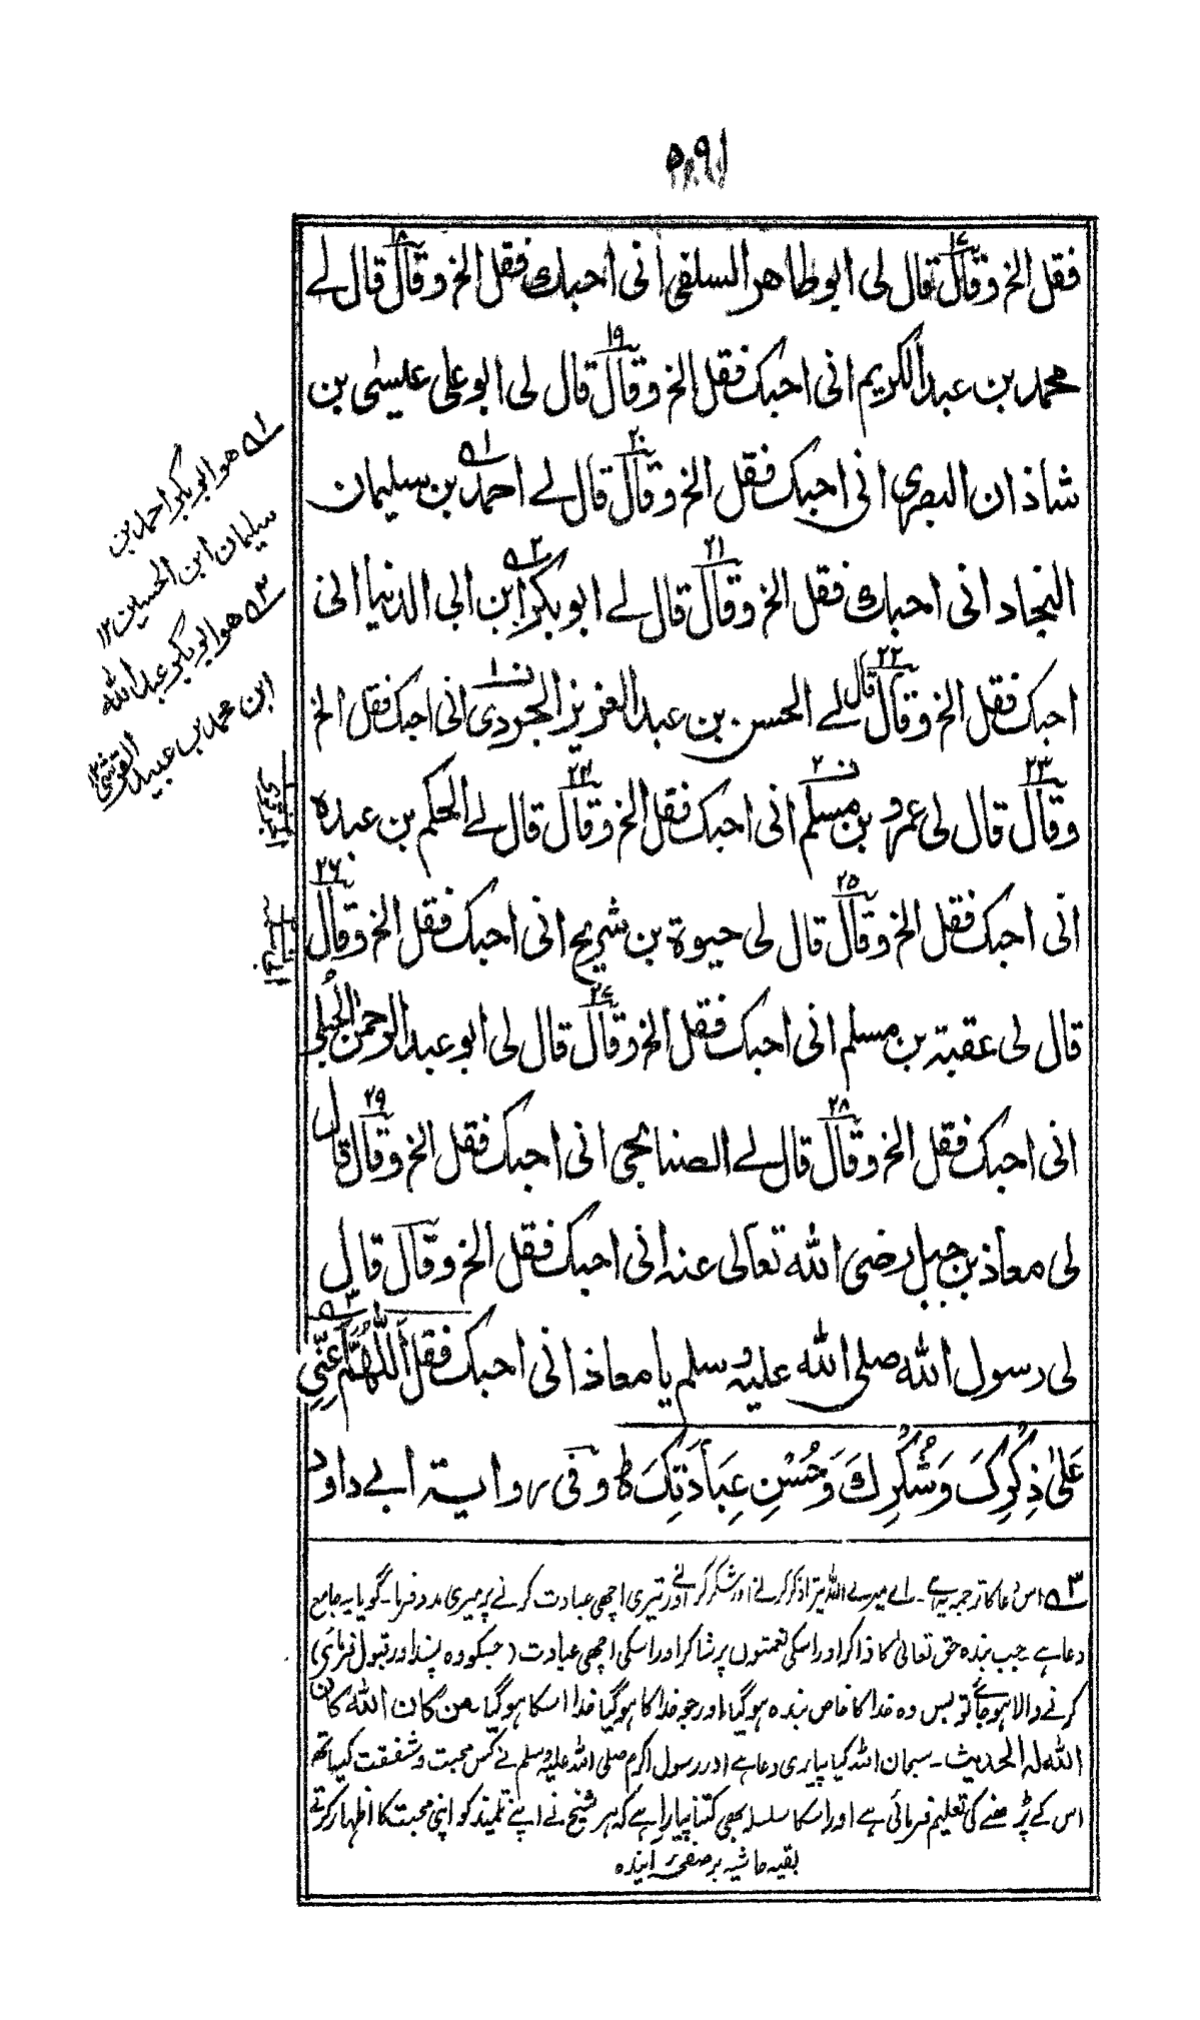 فقل الخ وقال ١٧ قال لی ابو طاهر السلفی انی احبك فقل الخ وقال ١٨ قال لے
محمد بن عبد الکریم انی احبک فقل الخ وقال ١٩ قال لی ابو علی عیسٰی بن
شاذان البصری انی احبک فقل الخ وقال ٢٠ قال لے احمد ١ﻪ بن سلیمان
النجاد انی احبك فقل الخ وقال ٢١ قال لے ابو بکر ٢ﻪ ابن ابی الدنیا انی
احبک فقل الخ وقال ٢٢ قال لے الحسن بن عبد العزیز الجردی ن١ انی احبک فقل الخ
وقال ٢٣ قال لی عمرو بن مسلم ن٢ انی احبک فقل الخ وقال ٢٤ قال لے الحکم بن عبده
انی احبک فقل الخ وقال ٢٥ قال لی حیوة بن شریح انی احبک فقل الخ وقال ٢٦
قال لی عقبتہ بن مسلم انی احبک فقل الخ وقال ٢٧ قال لی ابو عبد الرحمٰن الحُبلی
انی احبک فقل الخ وقال ٢٨ قال لے الصنابحی انی احبک فقل الخ وقال ٢٩ قال
لی معاذ بن جبل رضی الله تعالی عنہ انی احبک فقل الخ وقال قال
لی رسول الله صلی الله علیہ وسلم یا معاذ انی احبک فقل اَللّٰهُمَّ ٣ﻪ اَعِنِّی
عَلیٰ ذِکْرِکَ وَشُکْرِكَ وَحُسْنِ عِبَادَتِکَ ط وفی روایتہ ابے داود
٣ﻪ اس دعا کا ترجمہ یہ ہے۔ اے میرے اللہ تیرا ذکر کرنے اور شکر کرنے اور تیری اچھی عبادت کرنے پر میری مدد فرما۔ گویا یہ جامع
دعا ہے جب بندہ حق تعالیٰ کا ذاکر اور اسکی نعمتوں پر شاکر اور اسکی اچھی عبادت (جسکو وہ پسند اور قبول فرمائے)
کرنے والا ہو جائے تو بس وہ خدا کا خاص بندہ ہو گیا، اور جو خدا کا ہو گیا خدا اسکا ہو گیا۔ من کان الله کان
الله له الحدیث۔ سبحان اللہ کیا پیاری دعا ہے اور رسول اکرم صلی اللہ علیہ وسلم نے کس محبت و شفقت کیساتھ
اس کے پڑھنے کی تعلیم فرمائی ہے اور اسکا سلسلہ بھی کتنا پیارا ہے کہ ہر شیخ نے اپنے تلمیذ کو اپنی محبت کا اظہار کرتے
بقیہ حاشیہ بر صفحہ آیندہ
١ﻪ هو ابو بکر احمد بن
سلیمان ابن الحسین ١٢
٢ﻪ هو ابو بکر عبد الله
ابن محمد بن عبید القرشی ١٢